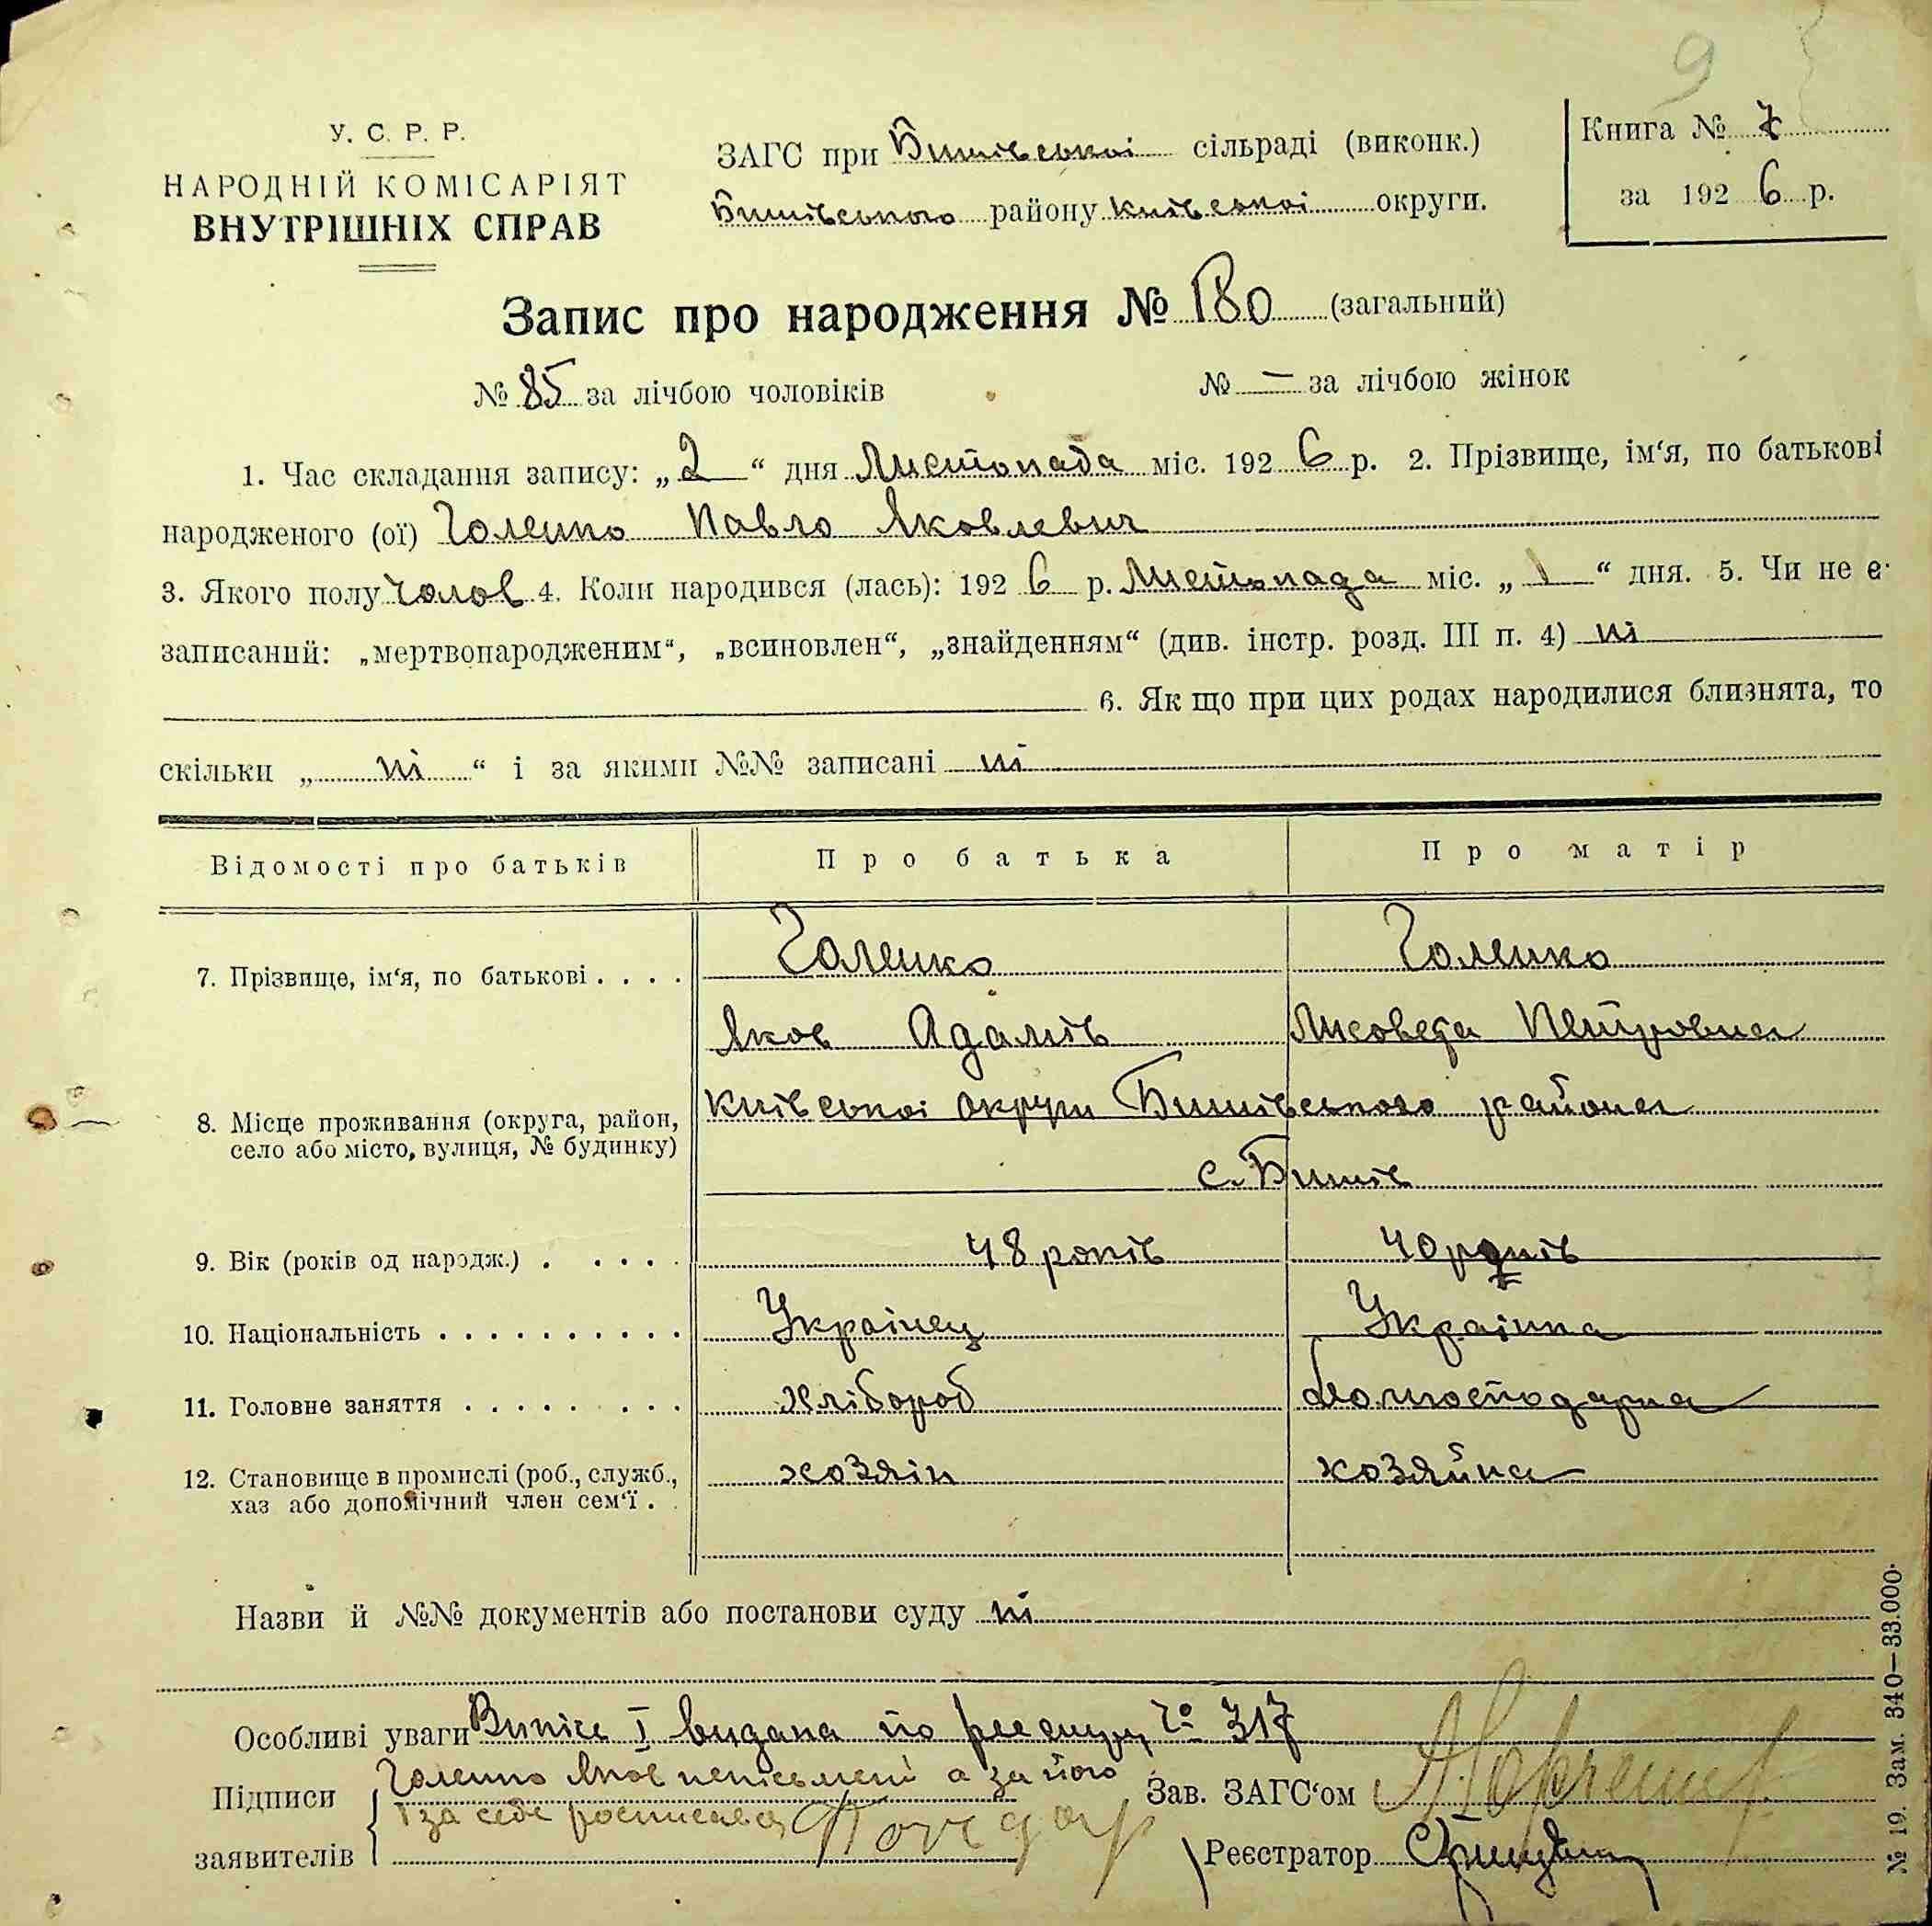 9
У. С. Р. Р.
НАРОДНІЙ КОМІСАРІЯТ
ВНУТРІШНІХ СПРАВ
ЗАГС при Бишівської сільраді (виконк.)
Бишівського району Київської округи.
Книга № 7
за 1926 р.
Запис про народження № 180 (загальний)
№ 85 за лічбою чоловіків № — за лічбою жінок
1. Час складання запису: „2“ дня Листопада міс. 1926 р. 2. Прізвище, ім‘я, по батькові
народженого (ої) Голенко Павло Яковлевич
3. Якого полу чолов 4. Коли народився (лась): 1926 р. Листопада міс. „1“ дня. 5. Чи не є
записаний: „мертвонародженим“, „всиновлен“, „знайденням“ (див. інстр. розд. III п. 4) ні
6. Як що при цих родах народилися близнята, то
скільки „ні“ і за якими №№ записані ні
Відомості про батьків Про батька Про матір
7. Прізвище, ім‘я, по батькові . . . . Голенко Голенко
Яков Адамів Лисовета Петровна
8. Місце проживання (округа, район, село або місто, вулиця, № будинку) Київської округи Бишівського района
с. Бишів
9. Вік (років од народж.) . . . . . 48 років 40 років
10. Національність . . . . . . . . . . . Українец Українка
11. Головне заняття . . . . . . . . . хлібороб домогосподарка
12. Становище в промислі (роб., служб., хаз або допомічний член сем‘ї . . хозяін хозяйка
Назви й №№ документів або постанови суду ні
Особливі уваги Випіс I видана по реестру № 317
Підписи заявителів Голенко Яков неписьмені а за його
і за себе росписався
Зав. ЗАГС‘ом
Реєстратор
№ 19. Зам. 340—33.000.